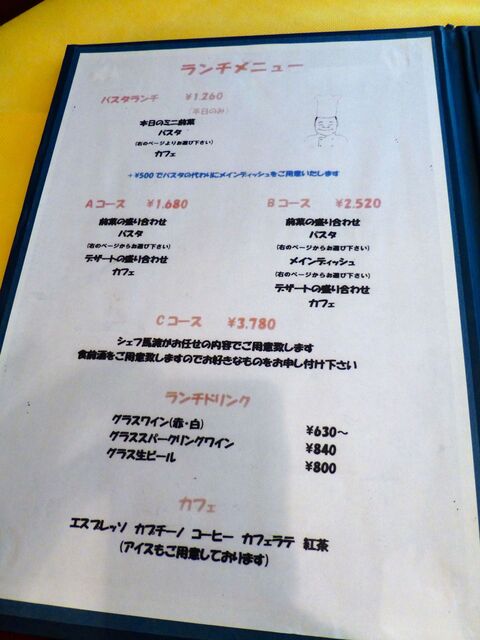 ランチメニュー
パスタランチ ¥1.260
(平日のみ)
本日のミニ前菜
パスタ
(右のページよりお選び下さい)
カフェ
+¥500でパスタの代わりにメインディッシュをご用意いたします
Aコース ¥1.680
前菜の盛り合わせ
パスタ
(右のページからお選び下さい)
デザートの盛り合わせ
カフェ
Bコース ¥2.520
前菜の盛り合わせ
パスタ
(右のページからお選び下さい)
メインディッシュ
(右のページからお選び下さい)
デザートの盛り合わせ
カフェ
Cコース ¥3.780
シェフ馬渡がお任せの内容でご用意致します
食前酒をご用意致しますのでお好きなものをお申し付け下さい
ランチドリンク
グラスワイン(赤・白) ¥630~
グラススパークリングワイン ¥840
グラス生ビール ¥800
カフェ
エスプレッソ カプチーノ コーヒー カフェラテ 紅茶
(アイスもご用意しております)